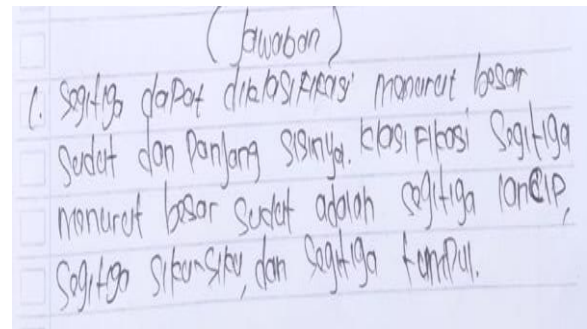 (Jawaban)
1. Segitiga dapat diklasifikasi menurut besar
sudut dan Panjang sisinya. klasifikasi Segitiga
menurut besar sudut adalah segitiga lancip,
segitiga siku-siku, dan segitiga tumpul.